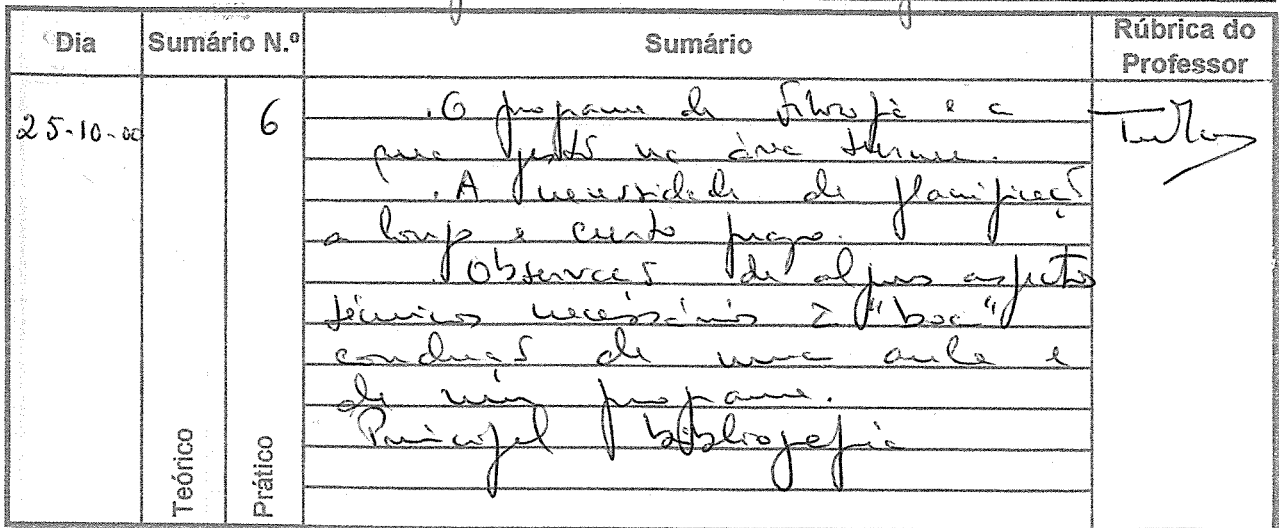 Dia Sumário N.º Sumário Rúbrica do Professor
25-10-00 6
.O programa de Filosofia e a
sua gestão na área
.A necessidade de planificação
a longo e curto prazo.
.Observação de alguns aspectos
técnicos necessários à "boa"
condução de uma aula e
de um programa.
Principal bibliografia
Teórico
Prático